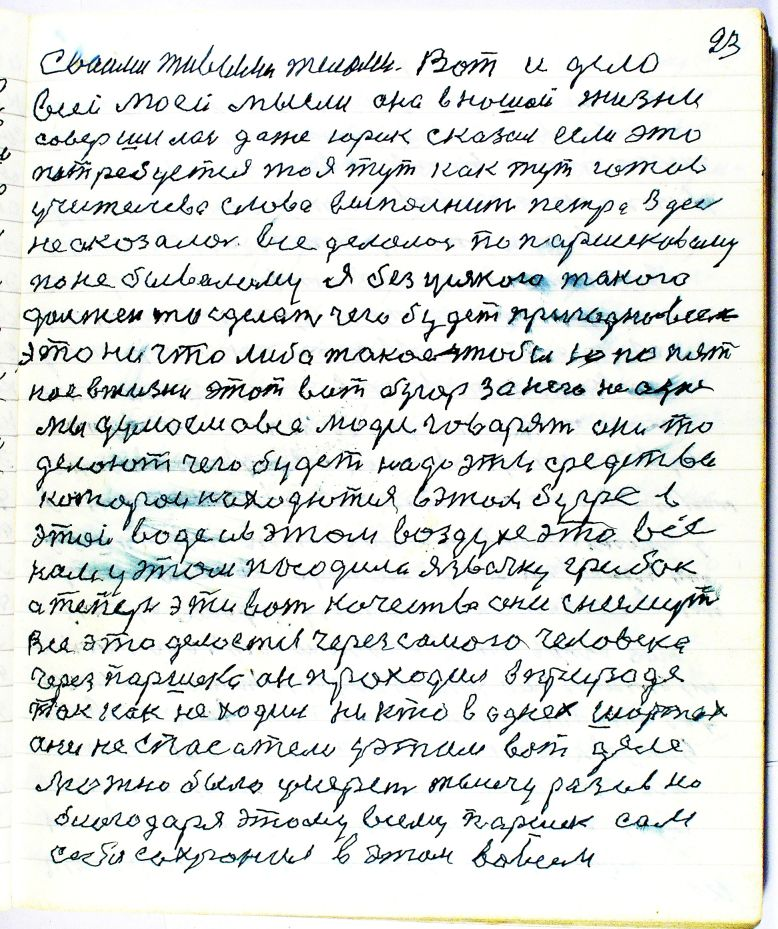 23
Сваими живыми телами. Вот и дело
всей моей мысли она в нашой жизни
совершилас даже юрик сказал если это
потребуется то я тут как тут готов
учителева слова выполнит петра здес
не оказалос. все делалос по паршековаму
по не бывалому я без усякого такого
должен то сделат чего будет пригодно всем
это ни что либа такое чтобы по пят
ное в жизни этот вот бугор за него не одне
мы думаем а все люди говарят они то
делоют чего будет надо эти средства
которои находются в этом бугре в
этой воде и в этом воздухе это всё
нам у этом посодила язвачку грибок
а теперь эти вот качества они снемут
Все это делается через самого человека
через паршека он проходил в природе
так как не ходил ни кто в однех шортах
они не спасатели у этом вот деле
можно было умерет тысичу разов но
благодаря этому всему паршек сам
себя сохронил в этом во всем